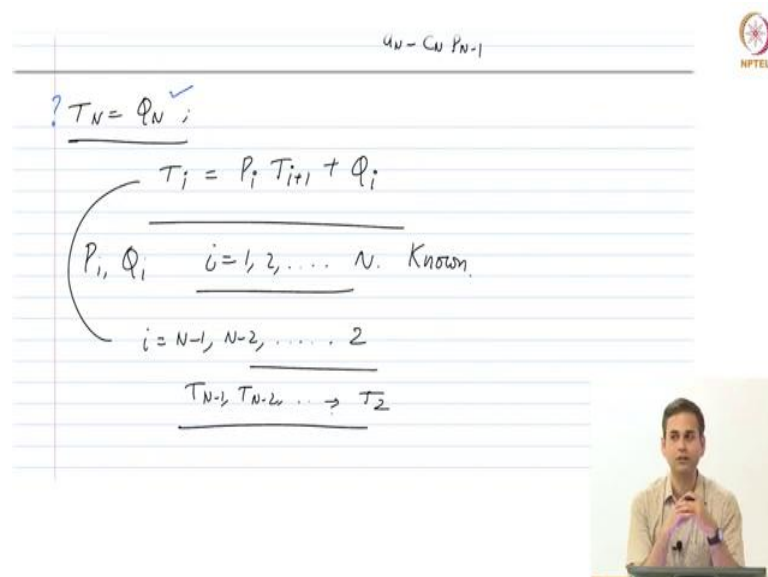 a_N - C_N P_N-1
NPTEL
? T_N = Q_N ✓ ;
T_i = P_i T_i+1 + Q_i
P_i, Q_i i = 1, 2, .... N. Known.
i = N-1, N-2, ..... 2
T_N-1, T_N-2, .. → T_2